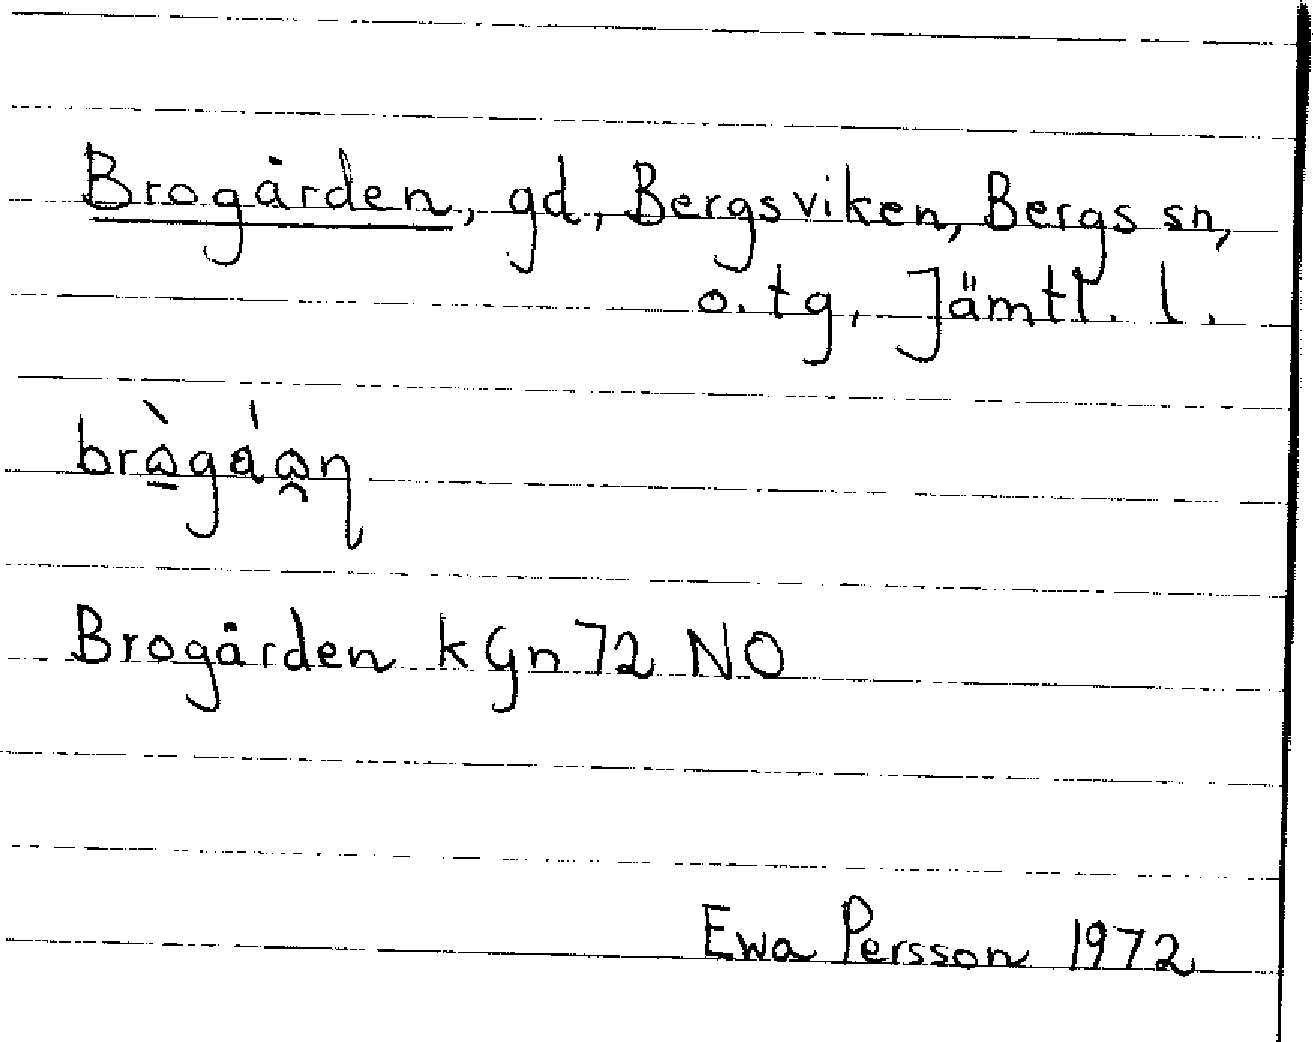 Brogården, gd, Bergsviken, Bergs sn,
o. tg, Jämtl. l.
Brogården kGn 72 NO
Ewa Persson 1972